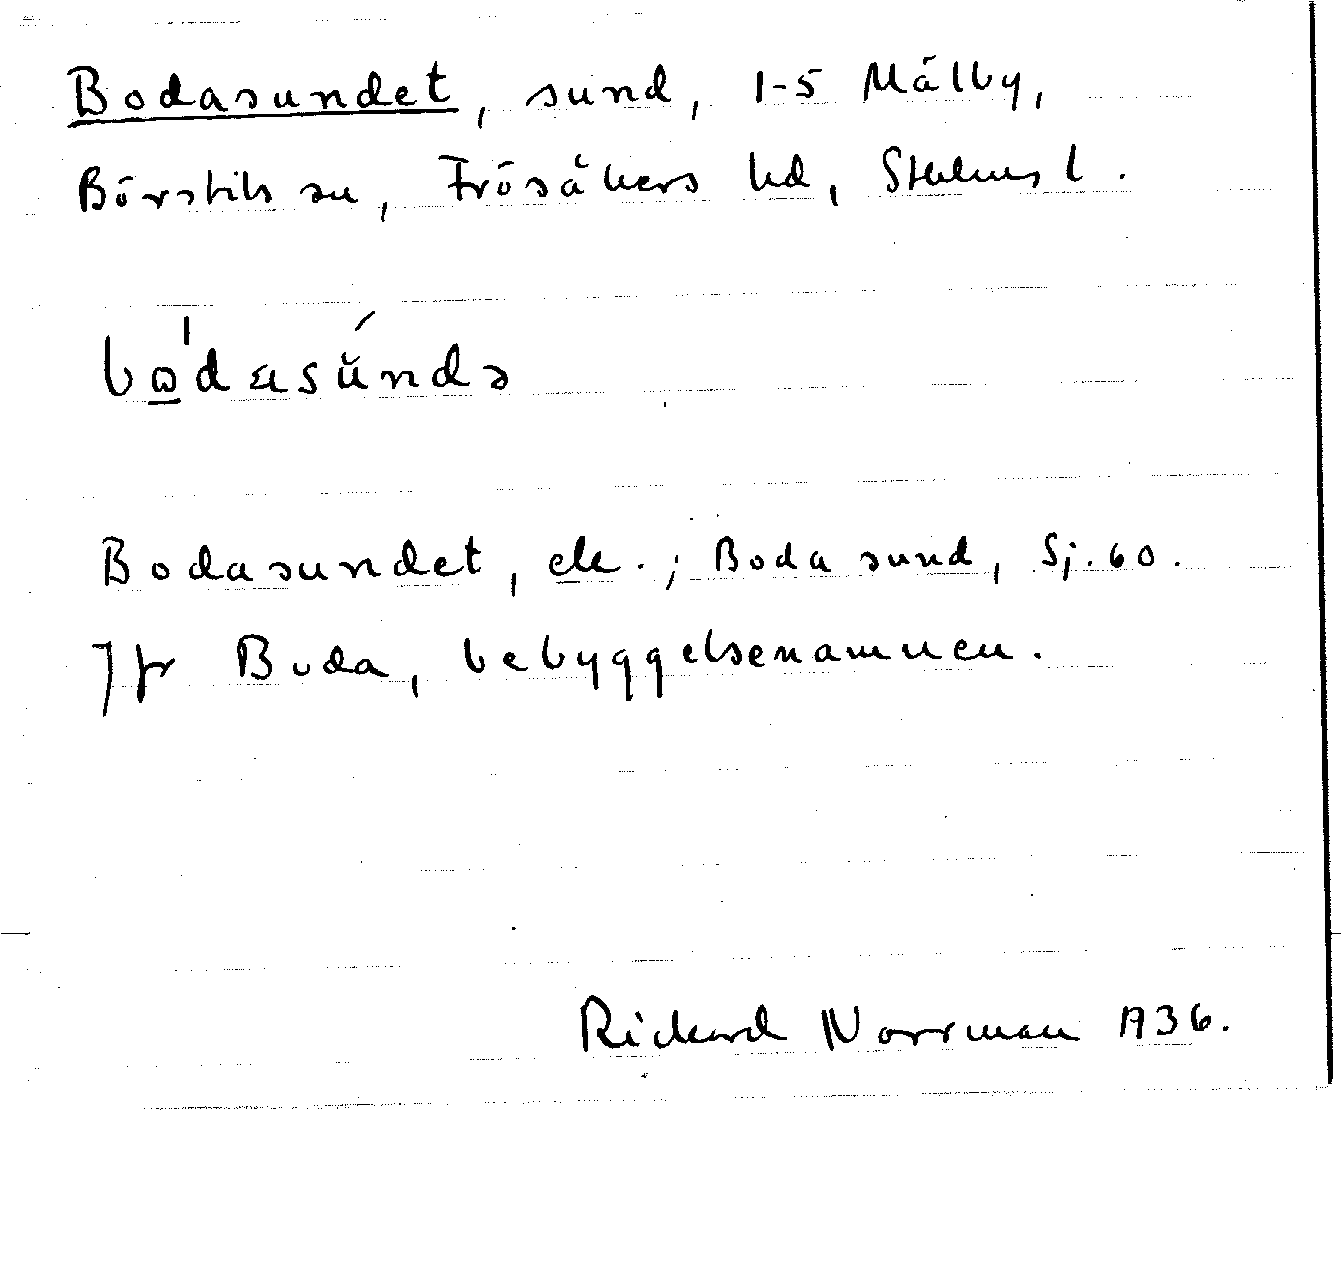 Bodasundet, sund, 1-5 Målby,
Börstils sn, Frösåkers hd, Sthlms l.
bω̲'dasúndə
Bodasundet, ek.; Boda sund, Sj. 60.
Jfr Boda, bebyggelsenamnen.
Rickard Norrman 1936.